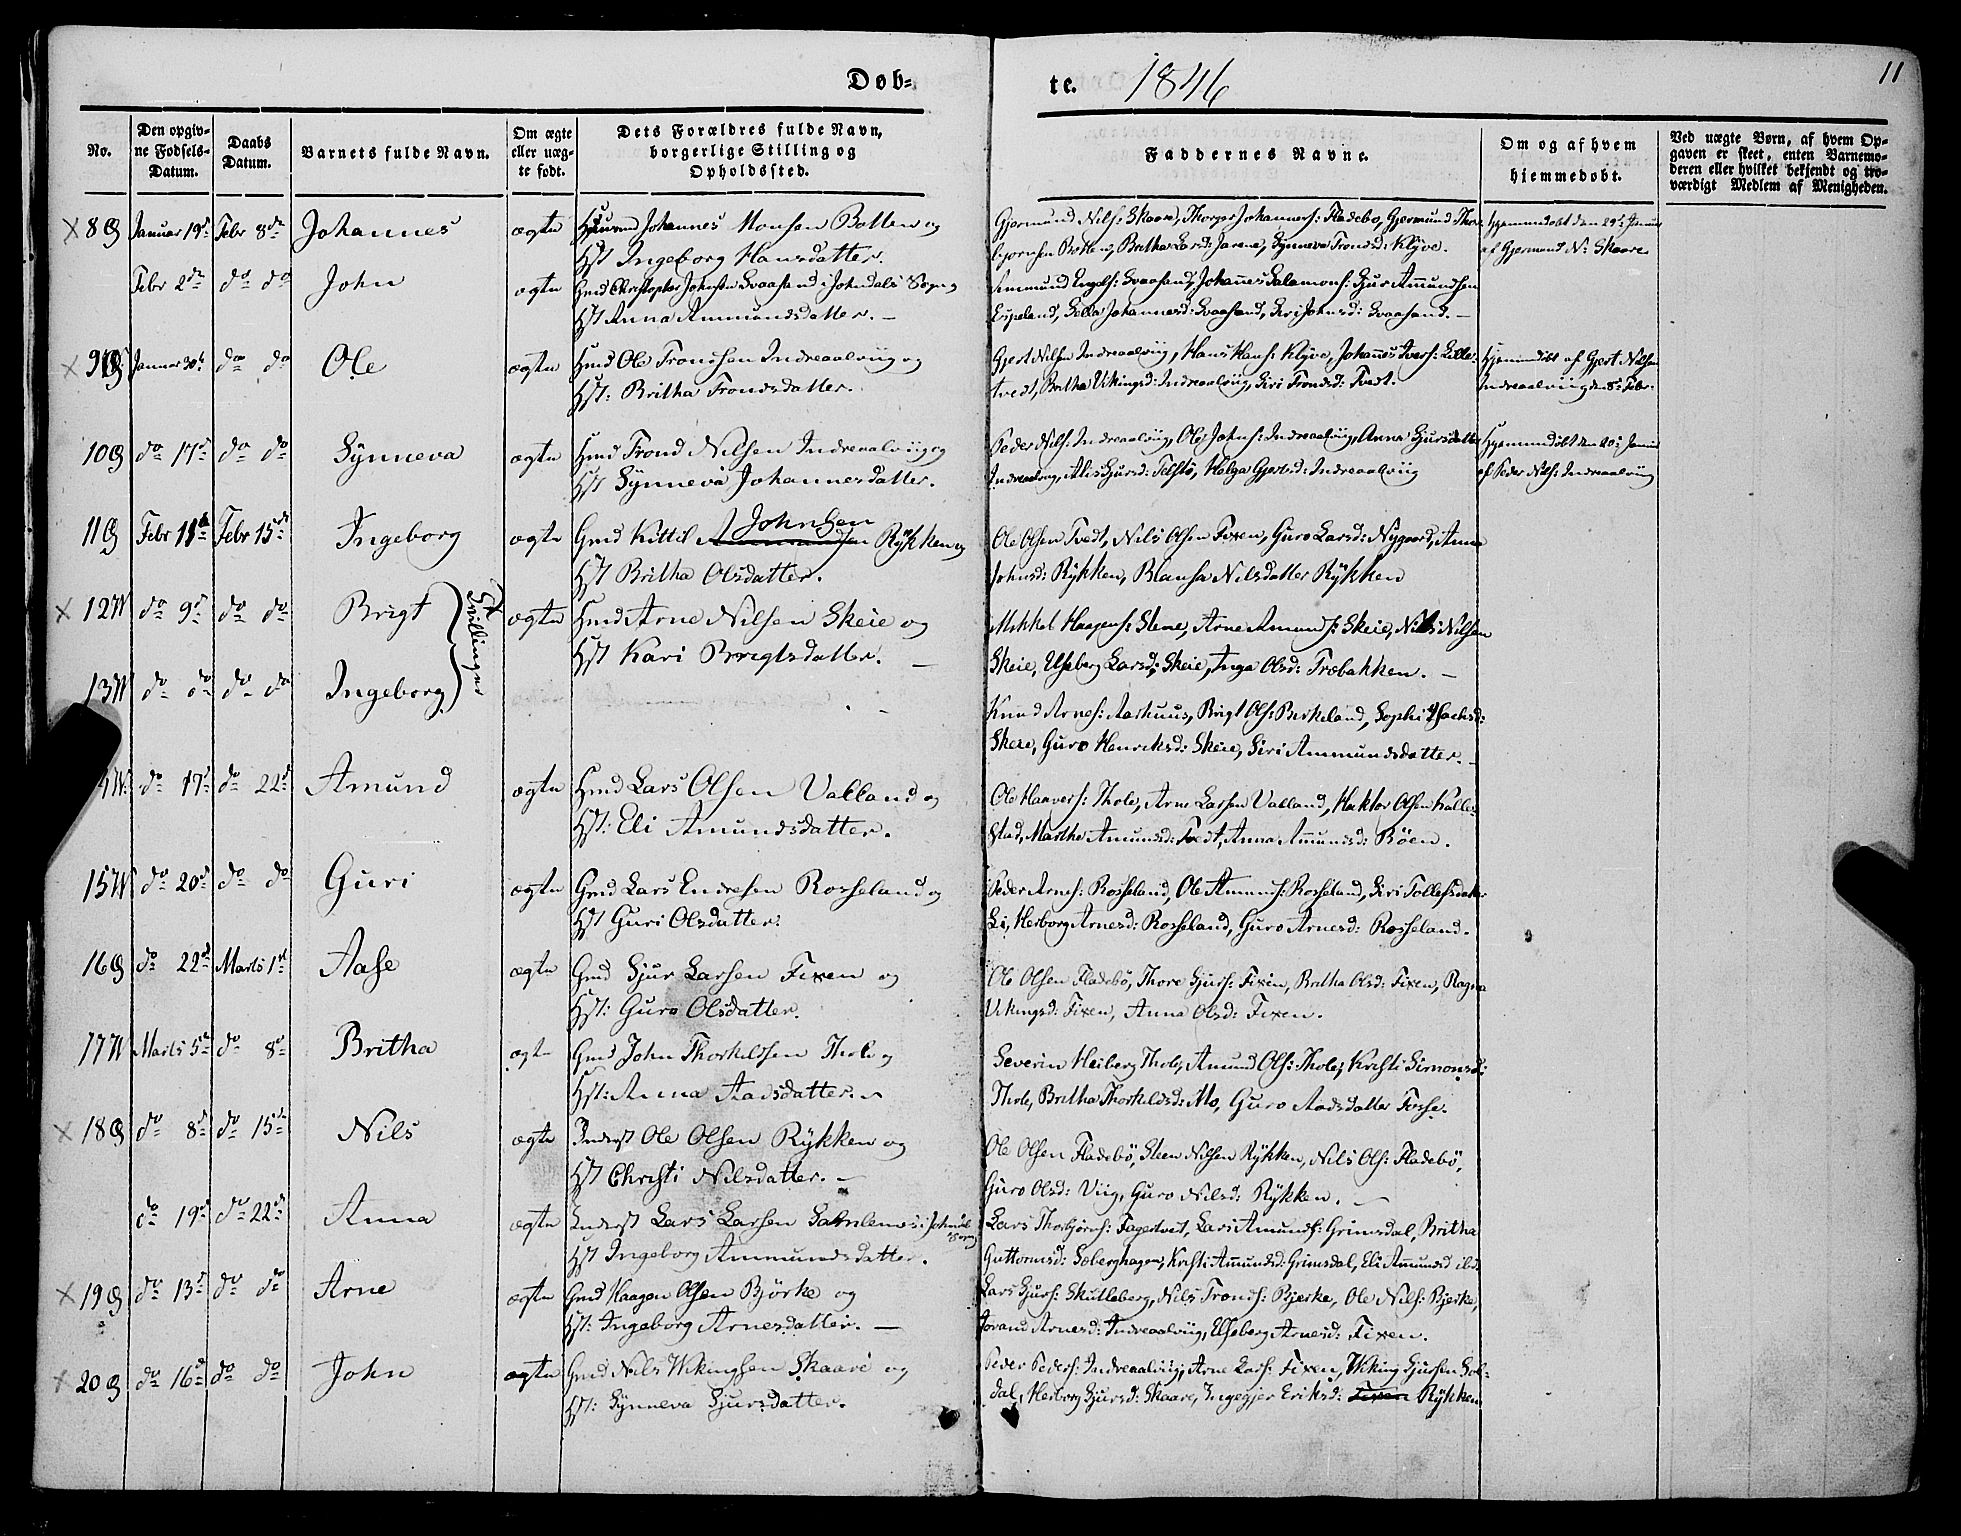 Døb-
te. 1846
11
No.
Den opgiv-
ne Fødsels-
Datum.
Daabs
Datum.
Barnets fulde Navn.
Om ægte
eller uæg-
te født.
Dets Forældres fulde Navn,
borgerlige Stilling og
Opholdssted.
Faddernes Navne.
Om og af hvem
hjemmedøbt.
Ved uægte Børn, af hvem Op-
gaven er skeet, enten Barnemo-
deren eller hvilket bekjendt og tro-
værdigt Medlem af Menigheden.
8 Januar 19d Febr 8de Johannes ægte Johannes Monsen Botten og
Hst Ingeborg Hansdatter.
Gjermund Nils: Skaare, Thorger Johannes: Fladebø, Gjermund Thor-
bjørnsen Botten, Britha Larsd: Jarene, Synneva Tronds: Klyve.
Hjemmedøbt den 29d Januar
af Gjermund N: Skaare
Febr 2de do do John ægte Gmd Christopher Johnsen Svaasand i Jondals Sogn og
Hst Anna Ammundsdatter. —
Ammund Engels: Svaasand, Johannes Salamons: Sjur Amundsen
Espeland, Johannesd: Svaasand, Siri Johnsd: Svaasand. —
9 Januar 30te do do Ole ægte Hmd Ole Trondsen Indreaalviig og
Hst: Britha Trondsdatter.
Gjert Nilsen Indreaalviig, Hans Hans: Klyve, Johannes Ivers: Lille-
tvedt, Britha Vikingsd: Indreaalviig, Siri Trondsd: Tvedt.
Hjemmedøbt af Gjert Nilsen
Indreaalviig den 8d Febr.
10 do 17d do do Synneva ægte Hmd Trond Nilsen Indreaalviig og
Hst Synneva Johannesdatter.
Peder Nils: Indreaalviig, Ole Johns: Indreaalviig, Anna Sjursdatter
Indreaalviig, Alis Sjursd: Telstø, Helga Gjertsd: Indreaalviig
Hjemmedøbt den 20d Januar
af Peder Nils: Indreaalviig
11 Febr 11te Febr 15de Ingeborg ægte Gmd Kittil Johnsen Rykken og
Hst Britha Olsdatter.
Ole Olsen Tvedt, Nils Olsen Fixen, Guro Larsd: Nygaard, Anna
Johnsd: Rykken, Blansa Nilsdatter Rykken
12 do 9d do do Brigt Tvillinger ægte Hmd Arne Nilsen Skeie og
Hst Kari Brigtsdatter. —
Mikkel Haagens: Steene, Arne Amunds: Skeie, Nils Nilsen
Skeie, Elseberg Larsd: Skeie, Inga Olsd: Træbakken. —
13 do do do do Ingeborg
Knud Arnes: Aarhuus, Brigt Ols: Birkeland, Sophi Isachsd:
Skeie, Guro Henriksd: Skeie, Siri Ammundsdatter. —
do 17d do 22d Amund ægte Hmd Lars Olsen Valland og
Hst: Eli Amundsdatter.
Ole Haavers: Thole, Arne Larsen Valland, Haktor Olsen Kalle-
stad, Martha Amundsd: Tvedt, Anna Amundsd: Røen.
15 do 20d do do Guri ægte Gmd Lars Endresen Rosseland og
Hst Guri Olsdatter.
Peder Arnes: Rosseland, Ole Amunds: Rosseland, Siri Tollefsdatter
Li, Herborg Arnesd: Rosseland, Guro Arnesd: Rosseland.
16 do 22d Marts 1ste Aase ægte Gmd Sjur Larsen Fixen og
Hst: Guro Olsdatter.
Ole Olsen Fladebø, Thore Sjurs: Fixen, Britha Olsd: Fixen, Ragna
Vikingsd: Fixen, Anna Olsd: Fixen.
17 Marts 5te do 8de Britha ægte Gmd John Thorkildsen Thole og
Hst: Anna Aadsdatter.
Severin Heiberg Thole, Amund Ols: Thole, Kristi Simonsd:
Thole, Britha Thorkildsd: Mo, Guro Aadsdatter Fosse.
18 do 8d do 15de Nils ægte Inderst Ole Olsen Rykken og
Hst Christi Nilsdatter. —
Ole Olsen Fladebø, Steen Nilsen Rykken, Nils Ols: Fladebø,
Guro Olsd: Viig, Guro Nilsd: Rykken. —
do 19d do 22de Anna ægte Inderst Lars Larsen i Jondals Sogn
Hst Ingeborg Ammundsdatter.
Lars Thorbjørns: Fagertvet, Lars Amunds: Grimsdal, Britha
Guttormsd: Soberghagen, Kristi Amundsd: Grimsdal, Eli Amundsd ibd.
19 do 13d do do Arne ægte Gmd Haagen Olsen Bjørke og
Hst: Ingeborg Arnesdatter. —
Lars Sjurs: Skutleberg, Nils Tronds: Bjerke, Ole Nils: Bjerke,
Jorand Arnesd: Indreaalviig, Elseberg Arnesd: Fixen.
20 do 16de do do John ægte Gmd Nils Wikingsen Skaare og
Hst: Synneva Sjursdatter.
Peder Peders: Indreaalviig, Arne Lars: Fixen, Wiking Sjursen Sol-
dal, Herborg Sjursd: Skaare, Ingegjer Eriksd: Fixen Rykken